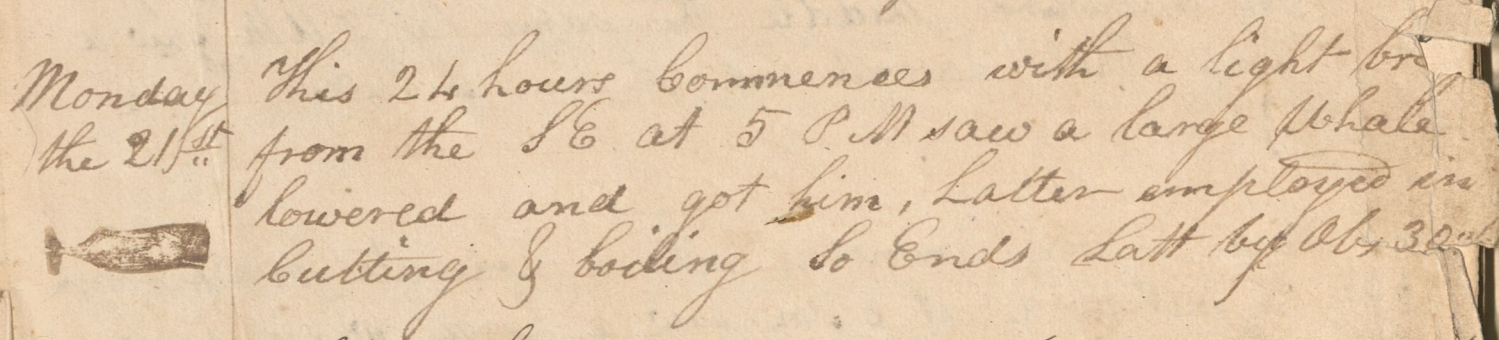 Monday
the 21st
This 24 hours Commences with a light
from the SE at 5 P M saw a large Whale
lowered and got him, Latter employed in
Cutting & boiling So Ends Latt by Obs